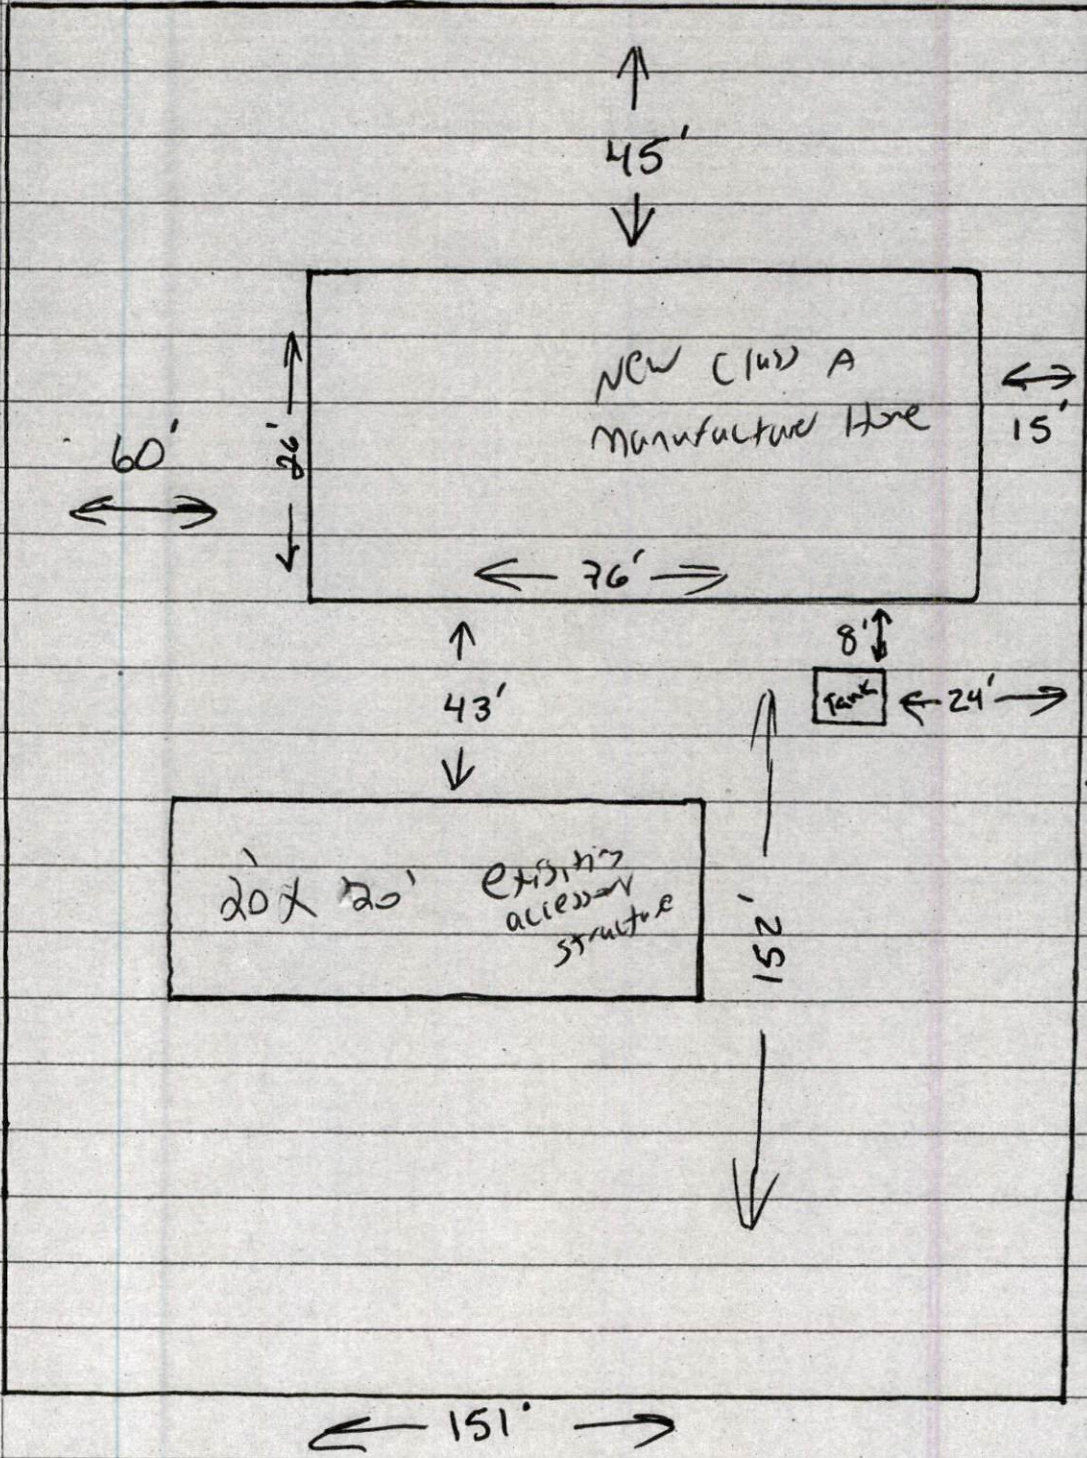 45'
New Class A
Manufacture Home
15'
60'
26'
76'
8'
Tank
24'
43'
20' x 20'
existing
accessory
structure
152'
151'